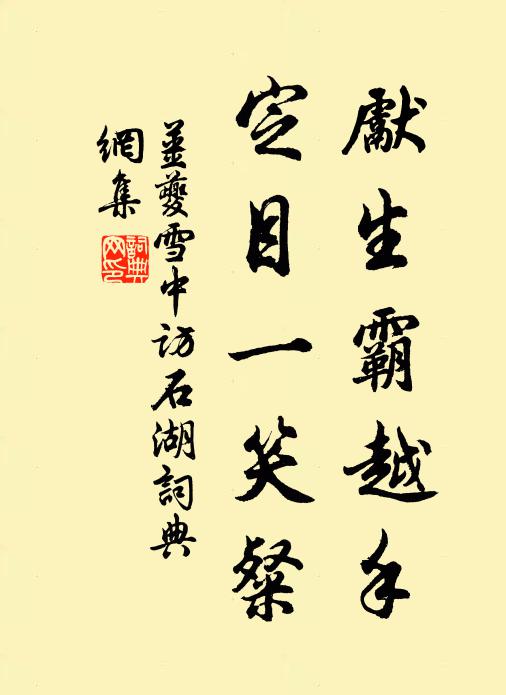 獻生霸越手
定目一笑粲
薑夔雪中訪石湖詞典
網集
詞典
网印